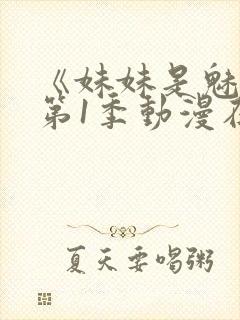 《妹妹是魅
第1季動漫在
夏天要喝粥